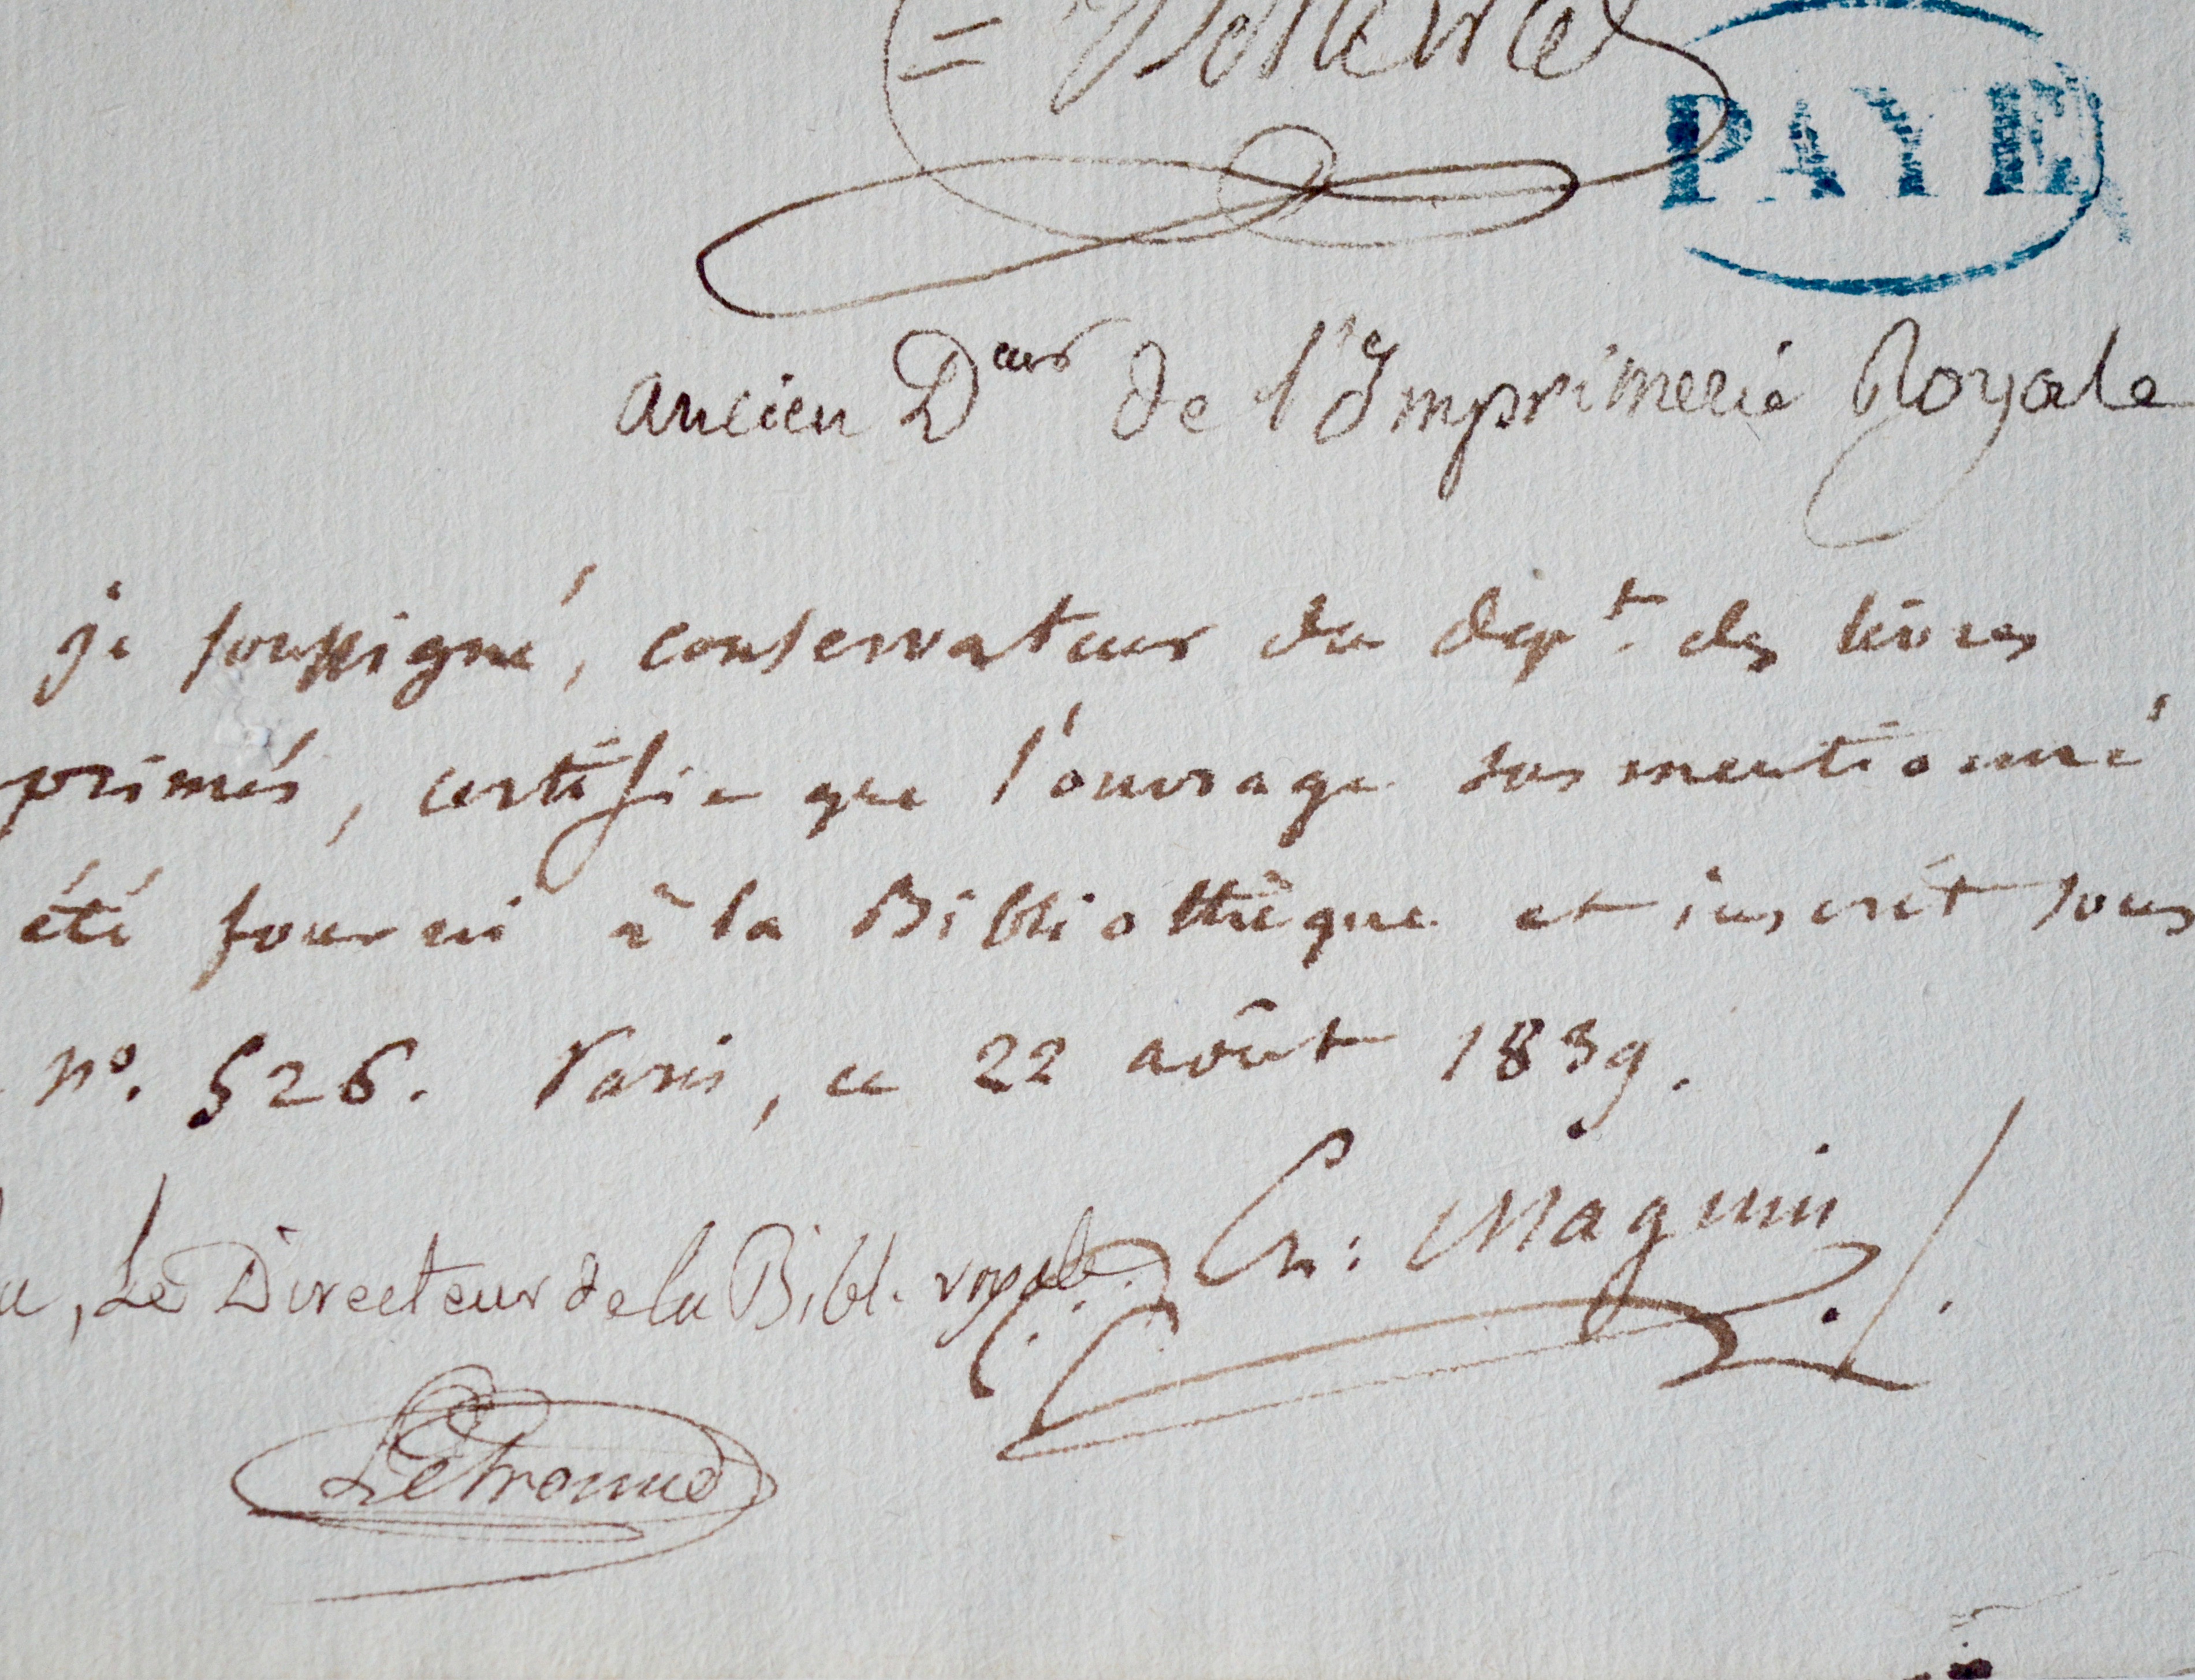 PAYÉ
ancien Deur de l'Imprimerie Royale
je soussigné, conservateur du dépt. des livres
primés, certifie que l'ouvrage susmentionné
été fourni à la Bibliothèque et inscrit sous
n°. 526. Paris, ce 22 août 1839.
Ch: Magnin
, Le Directeur de la Bibl. royale
Letronne